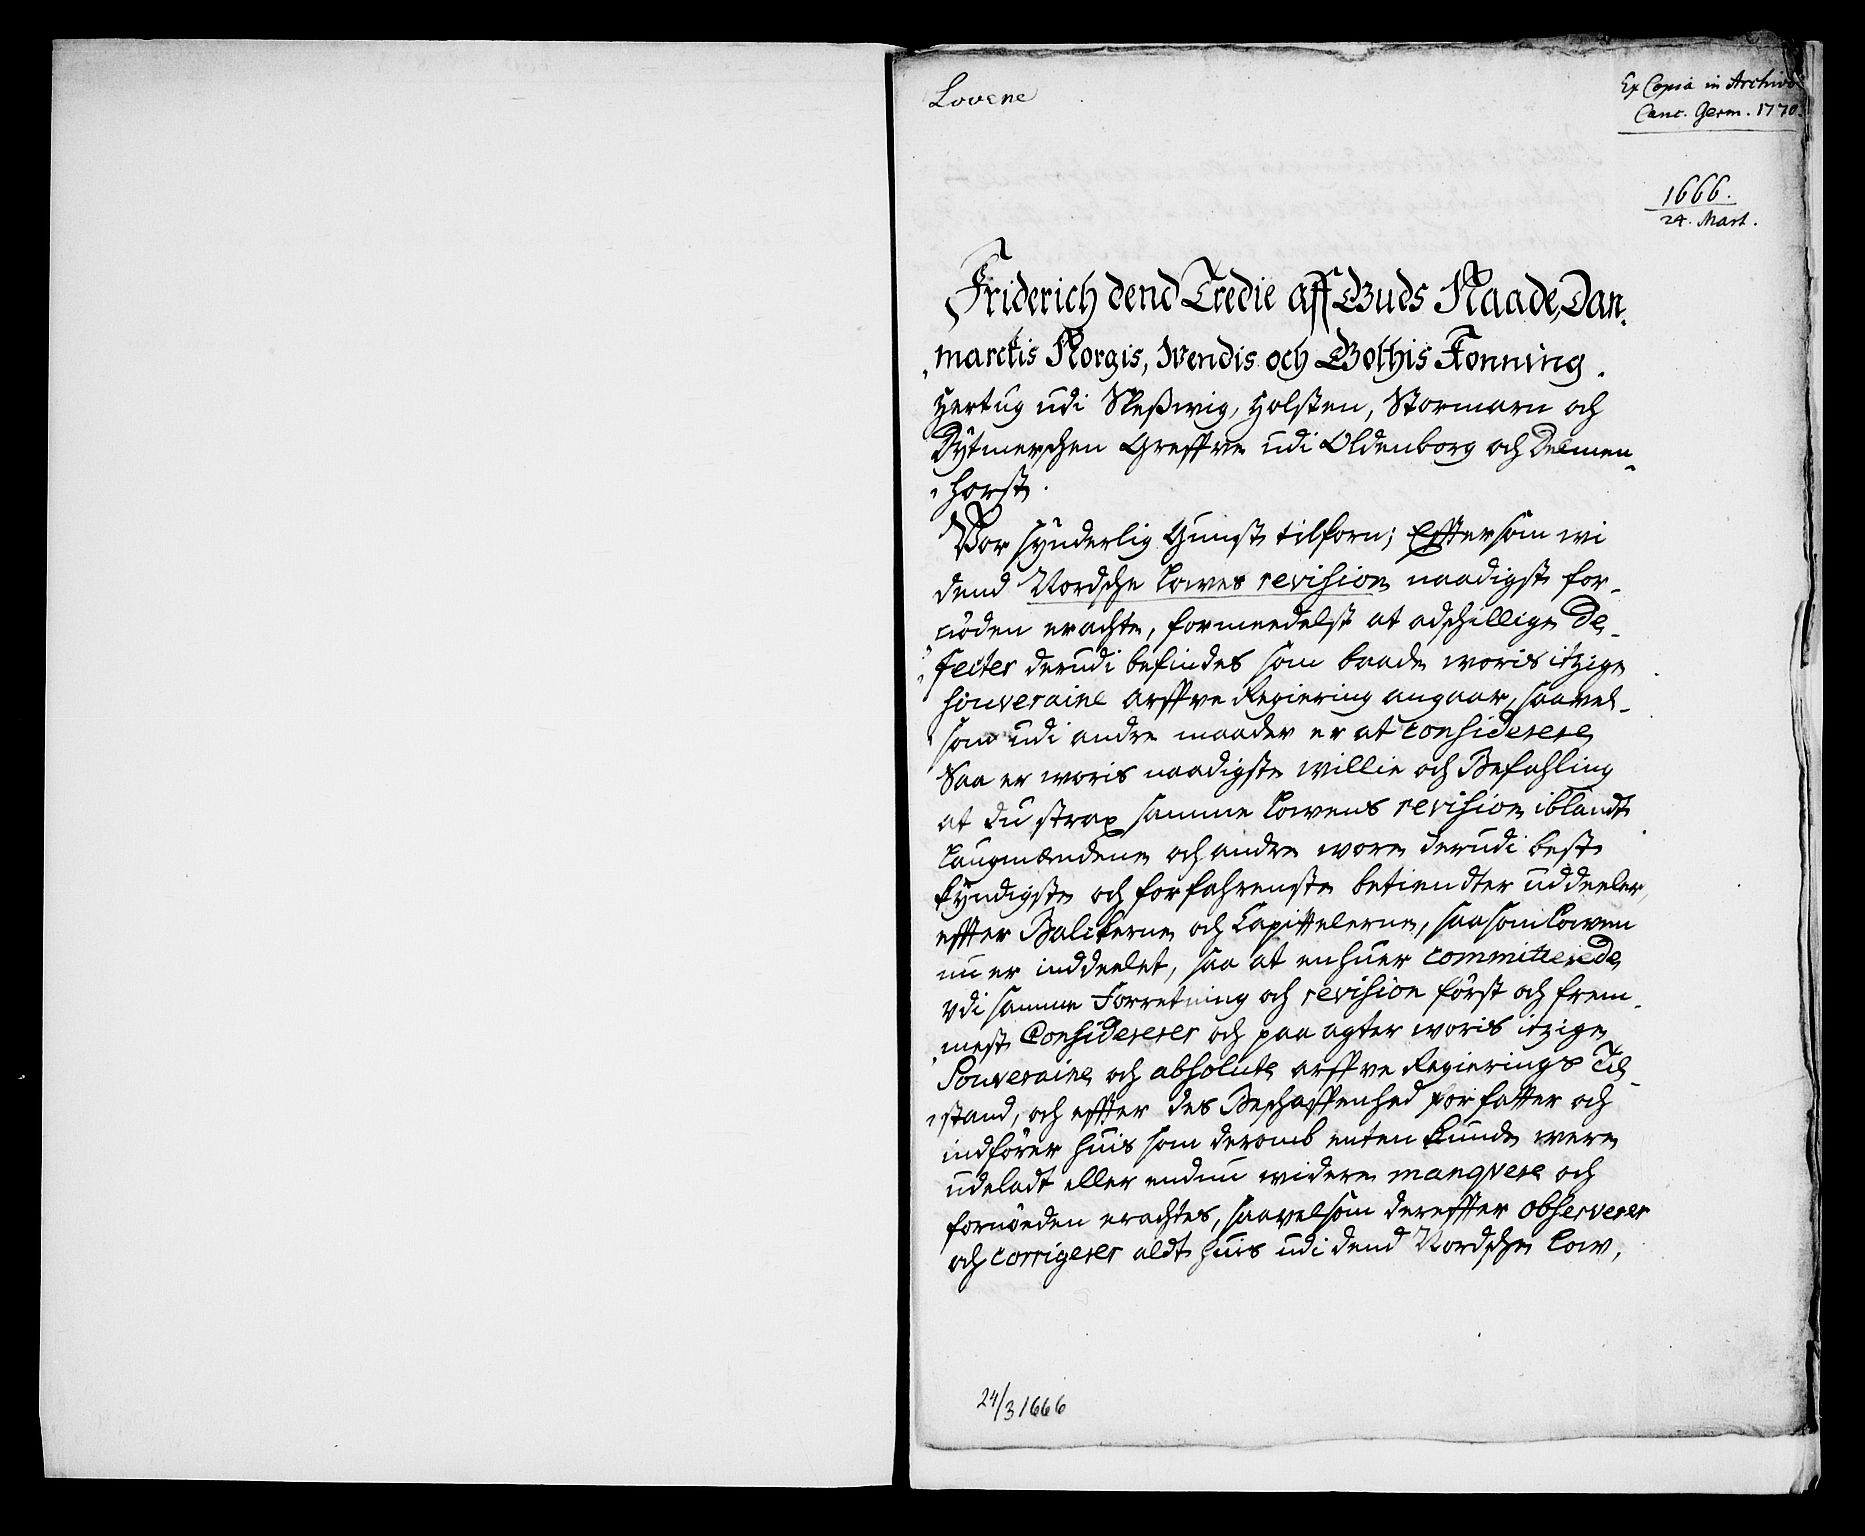 Lovene
Ex Copia in Archivo
Canc. Germ. 1770.
1666.
24. Mart.
Friderich dend Tredie aff Guds Naade, Dan-
marckis Norgis, Wendis och Gothis Konning.
Hertug udi Sleßwig, Holsten, Stormarn och
Dÿtmerschen Greffve udi Oldenborg och Delmen-
horst.
Vor sÿnderlig Gunst tilforn; Efftersom wi
dend Nordsche Lowes revision naadigst for-
nöden erachte, formeedelst at adschillige De-
fecter derudi befindes som baade woris itzige
souveraine arffve Regiering angaar, saavel-
som udi andre maader er at considerere,
Saa er woris naadigste willie och Befahling
at du strax samme Lowens revision iblandt
Laugmændene och andre wore derudi best
kÿndigste och forfahrenste betiendter uddeeler,
effter Balckerne och Capittelerne, saasom Lowen
nu er inddeelet, saa at enhuer committerede
udi samme Forretning och revision först och frem-
mest Considererer och paa agter woris itzige
Souveraine och absolute arffve Regierings Til-
stand, och effter des Beschaffenhed forfatter och
indförer huis som deromb enten kunde were
udeladt eller endnu widere manqvere och
fornöeden erachtes, saavelsom dereffter observerer
och corrigerer aldt huis udi dend Nordsche Low,
24/3 1666